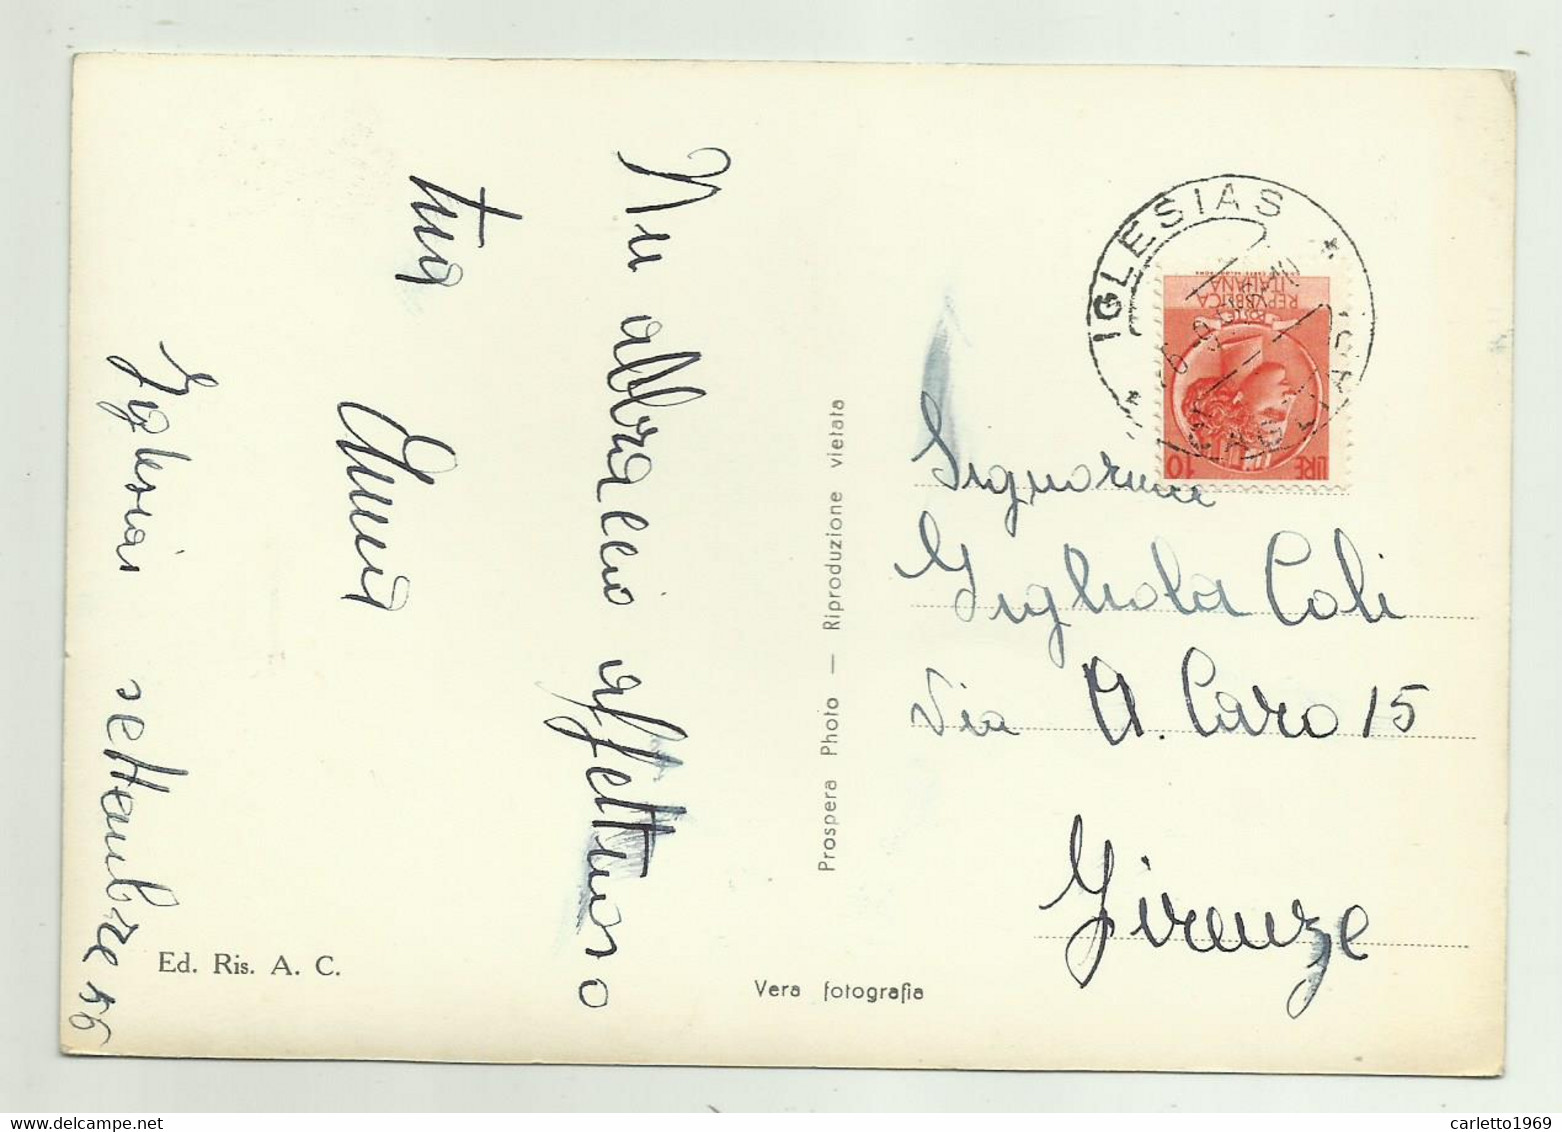 Un abbraccio affettuoso
tua
Iglesias settembre 56
Ed. Ris. A. C.
Prospera Photo — Riproduzione vietata
Vera fotografia
IGLESIAS
REPVBBLICA
ITALIANA
POSTE
LIRE 10
Signorina
Gigliola Coli
Via A. Caro 15
Firenze
www.delcampe.net
carletto1969